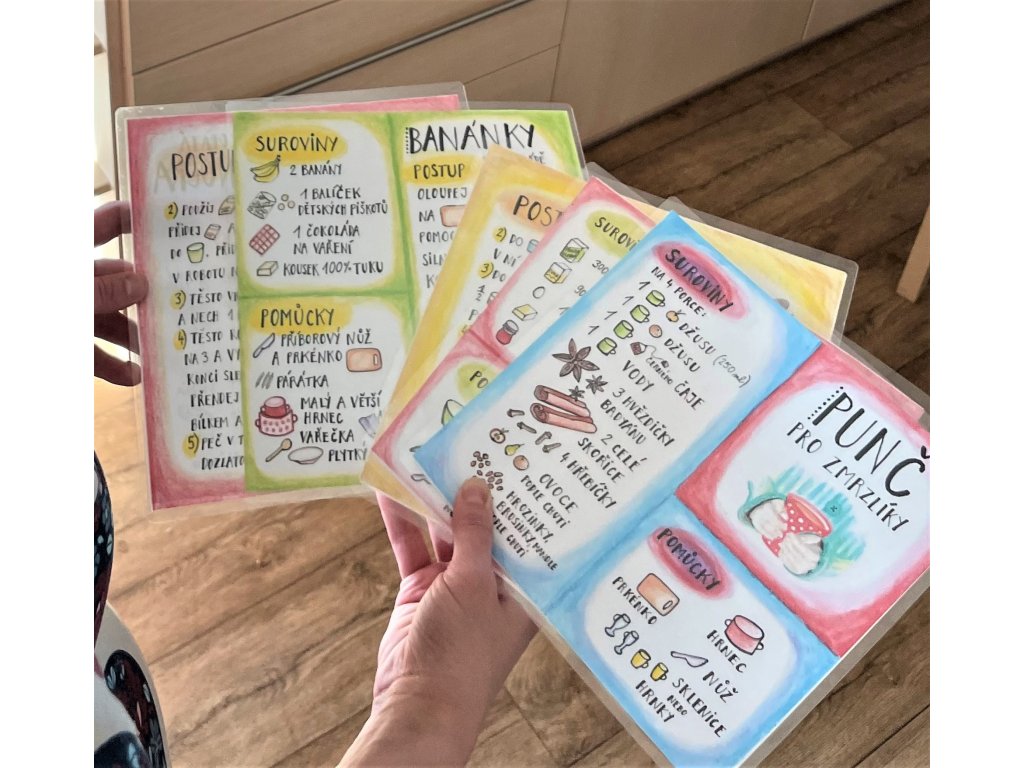 POSTU
2) POUŽIJ
PŘIDEJ
DO
V ROBOTU
3) TĚSTO
A NECH 1
4) TĚSTO
NA 3 A
KONCI
PŘENDEJ
BÍLKEM A
5) PEČ V T
DOZLATO
SUROVINY
2 BANÁNY
1 BALÍČEK
DĚTSKÝCH PIŠKOTŮ
1 ČOKOLÁDA
NA VAŘENÍ
KOUSEK 100% TUKU
POMŮCKY
PŘÍBOROVÝ NŮŽ
A PRKÉNKO
PÁRÁTKA
MALÝ A VĚTŠÍ
HRNEC
VAŘEČKA
PLYTKÝ
BANÁNKY
POSTUP
OLOUPEJ
NA
POMOC
SÍLN
POST
2) DO
V NÍ
3) DO
SUROVI
300
90
PO
SUROVINY
NA 4 PORCE:
1 DŽUSU (250ml)
1 DŽUSU
1 ČAJE
1 VODY
3 HVĚZDIČKY
BADYÁNU
2 CELÉ
SKOŘICE
4 HŘEBÍČKY
OVOCE
PODLE CHUTI
HROZINKY,
BRUSINKY, MANDLE
PODLE CHUTI
PUNČ
PRO ZMRZLÍKY
POMŮCKY
PRKÉNKO
HRNEC
NŮŽ
SKLENICE
NEBO
HRNKY